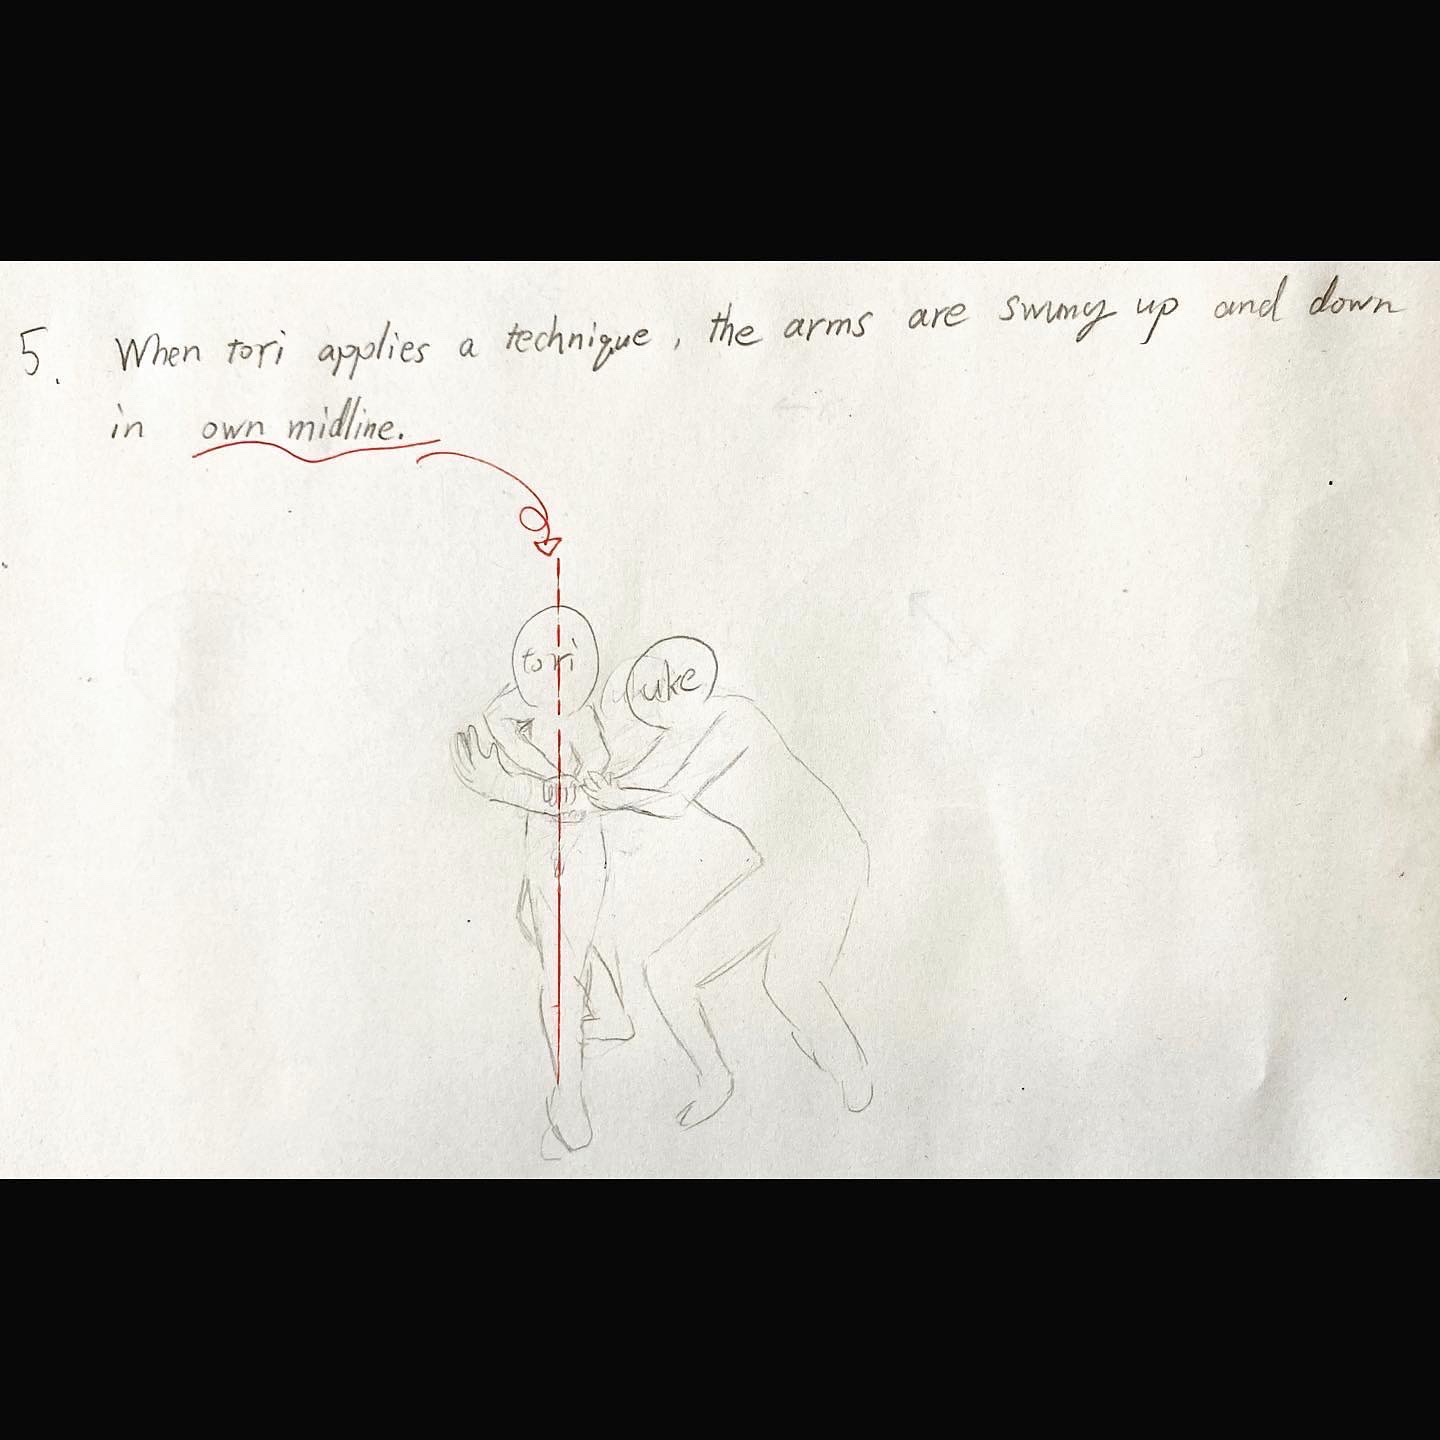 5. When tori applies a technique, the arms are swung up and down
in own midline.
tori
uke